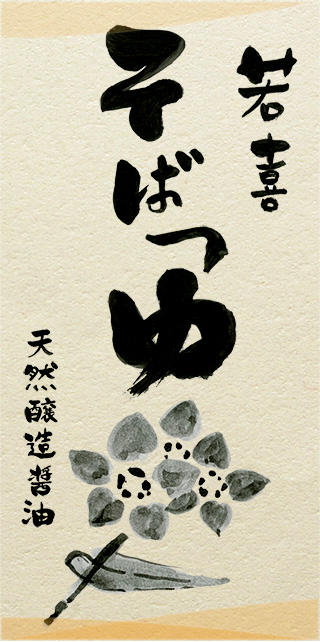 若喜
そばつゆ
天然醸造醤油